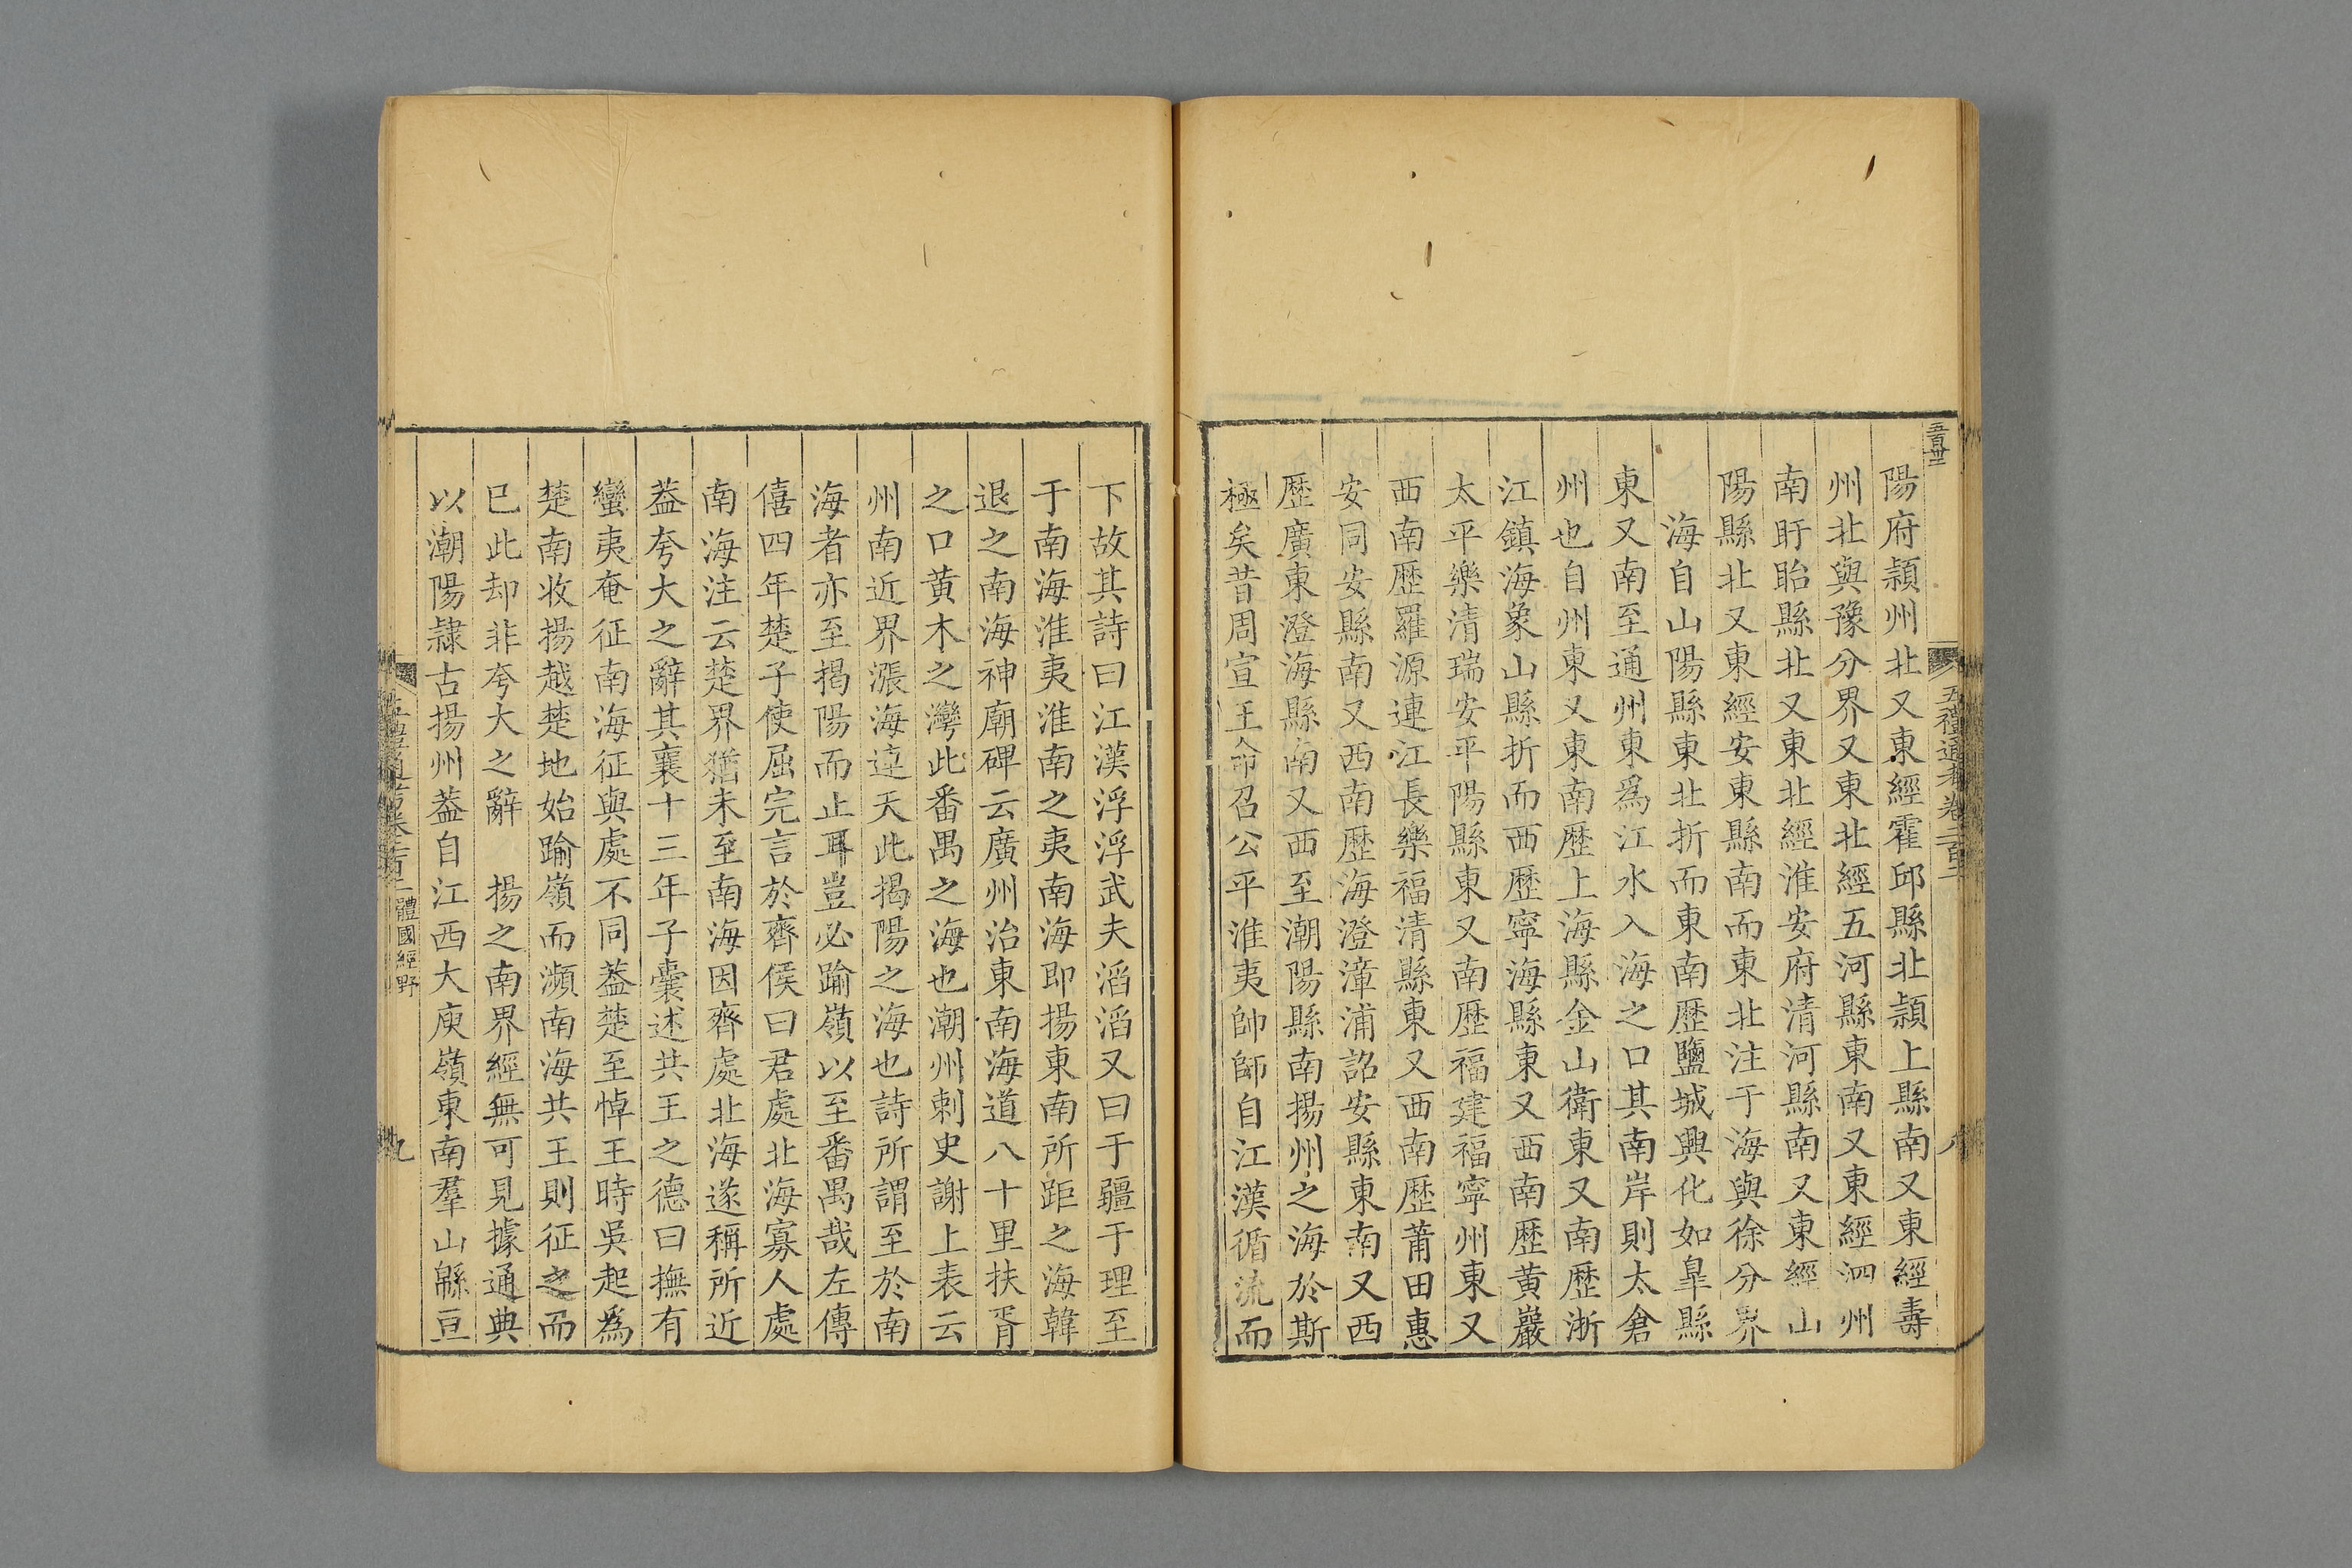 五百卅二
五禮通考卷二百二
八
陽府潁州北又東經霍邱縣北潁上縣南又東經壽
州北與豫分界又東北經五河縣東南又東經泗州
南盱眙縣北又東北經淮安府清河縣南又東經山
陽縣北又東經安東縣南而東北注于海與徐分界
海自山陽縣東北折而東南歷鹽城興化如臯縣
東又南至通州東爲江水入海之口其南岸則太倉
州也自州東又東南歷上海縣金山衛東又南歷浙
江鎮海象山縣折而西歷寧海縣東又西南歷黄巖
太平樂清瑞安平陽縣東又南歷福建福寧州東又
西南歷羅源連江長樂福清縣東又西南歷莆田惠
安同安縣南又西南歷海澄漳浦詔安縣東南又西
歷廣東澄海縣南又西至潮陽縣南揚州之海於斯
極矣昔周宣王命召公平淮夷帥師自江漢循流而
下故其詩曰江漢浮浮武夫滔滔又曰于疆于理至
于南海淮夷淮南之夷南海即揚東南所距之海韓
退之南海神廟碑云廣州治東南海道八十里扶胥
之口黄木之灣此番禺之海也潮州刺史謝上表云
州南近界漲海連天此揭陽之海也詩所謂至於南
海者亦至揭陽而止耳豈必踰嶺以至番禺哉左傳
僖四年楚子使屈完言於齊侯曰君處北海寡人處
南海注云楚界猶未至南海因齊處北海遂稱所近
葢夸大之辭其襄十三年子囊述共王之德曰撫有
蠻夷奄征南海征與處不同葢楚至悼王時吳起爲
楚南收揚越楚地始踰嶺而瀕南海共王則征之而
已此却非夸大之辭　揚之南界經無可見據通典
以潮陽隷古揚州葢自江西大庾嶺東南羣山緜亘
體國經野
九